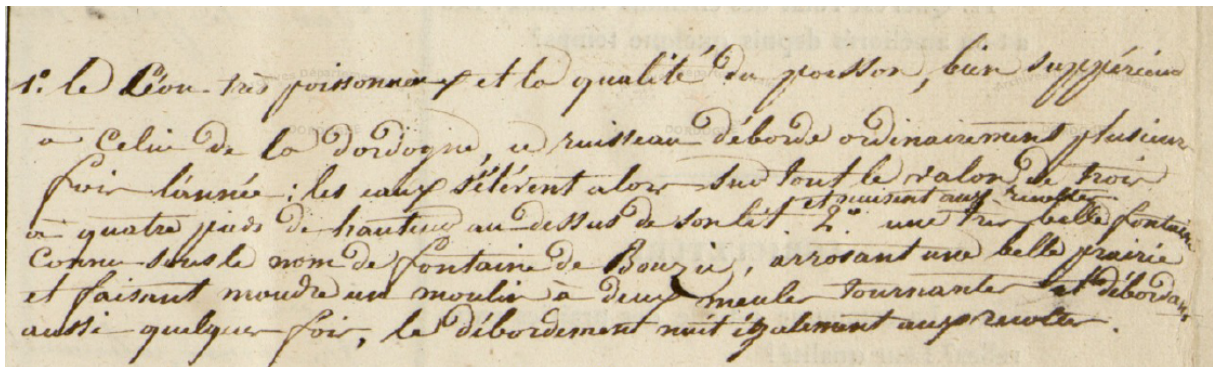 1.º le Céou très poissonneux et la qualité du poisson, bien suppérieur
à Celui de la dordogne, ce ruisseau déborde ordinairement plusieurs
fois l'année ; les eaux s'élèvent alors sur tout le valon de trois
et nuisent aux recoltes
à quatre pieds de hauteur au dessus de son lit 2.º une très belle fontaine
Connu sous le nom de fontaine de Bouzic, arrosant une belle prairie
et faisant moudre un moulin à deux meules tournantes et débordant
aussi quelques fois, le débordement nuit également aux recoltes.